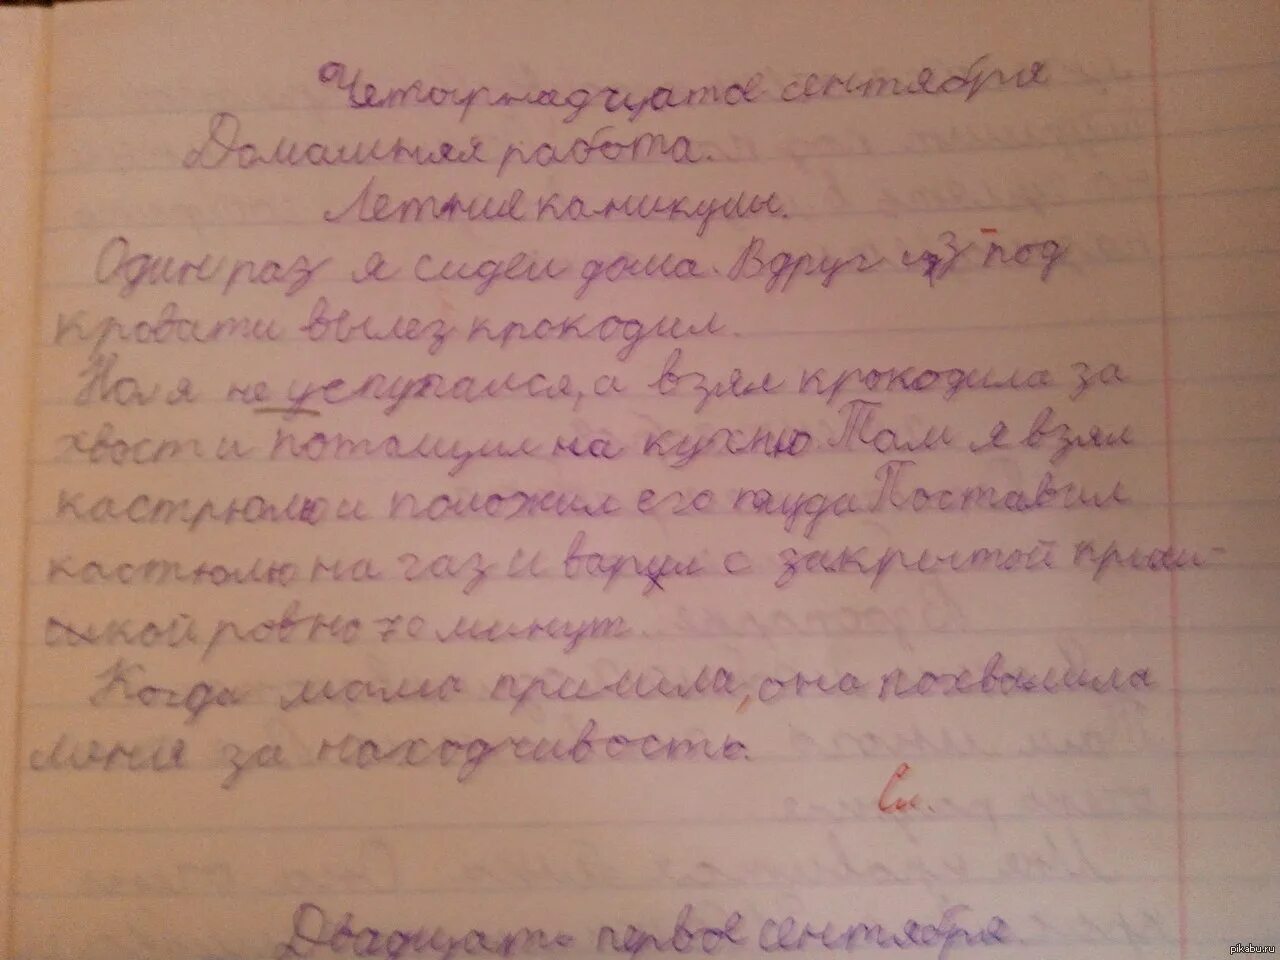 Четырнадцатое сентября
Домашняя работа.
Летние каникулы.
Один раз я сидел дома. Вдруг из-под
кровати вылез крокодил.
Но я не успугался, а взял крокодила за
хвост и потощил на кухню. Там я взял
кастрюлю и положил его туда. Поставил
кастюлю на газ и варил с закрытой крыш-
кой ровно минут.
Когда мама пришла, она похвалила
меня за находчивость.
См.
Двадцать первое сентября.
pikabu.ru